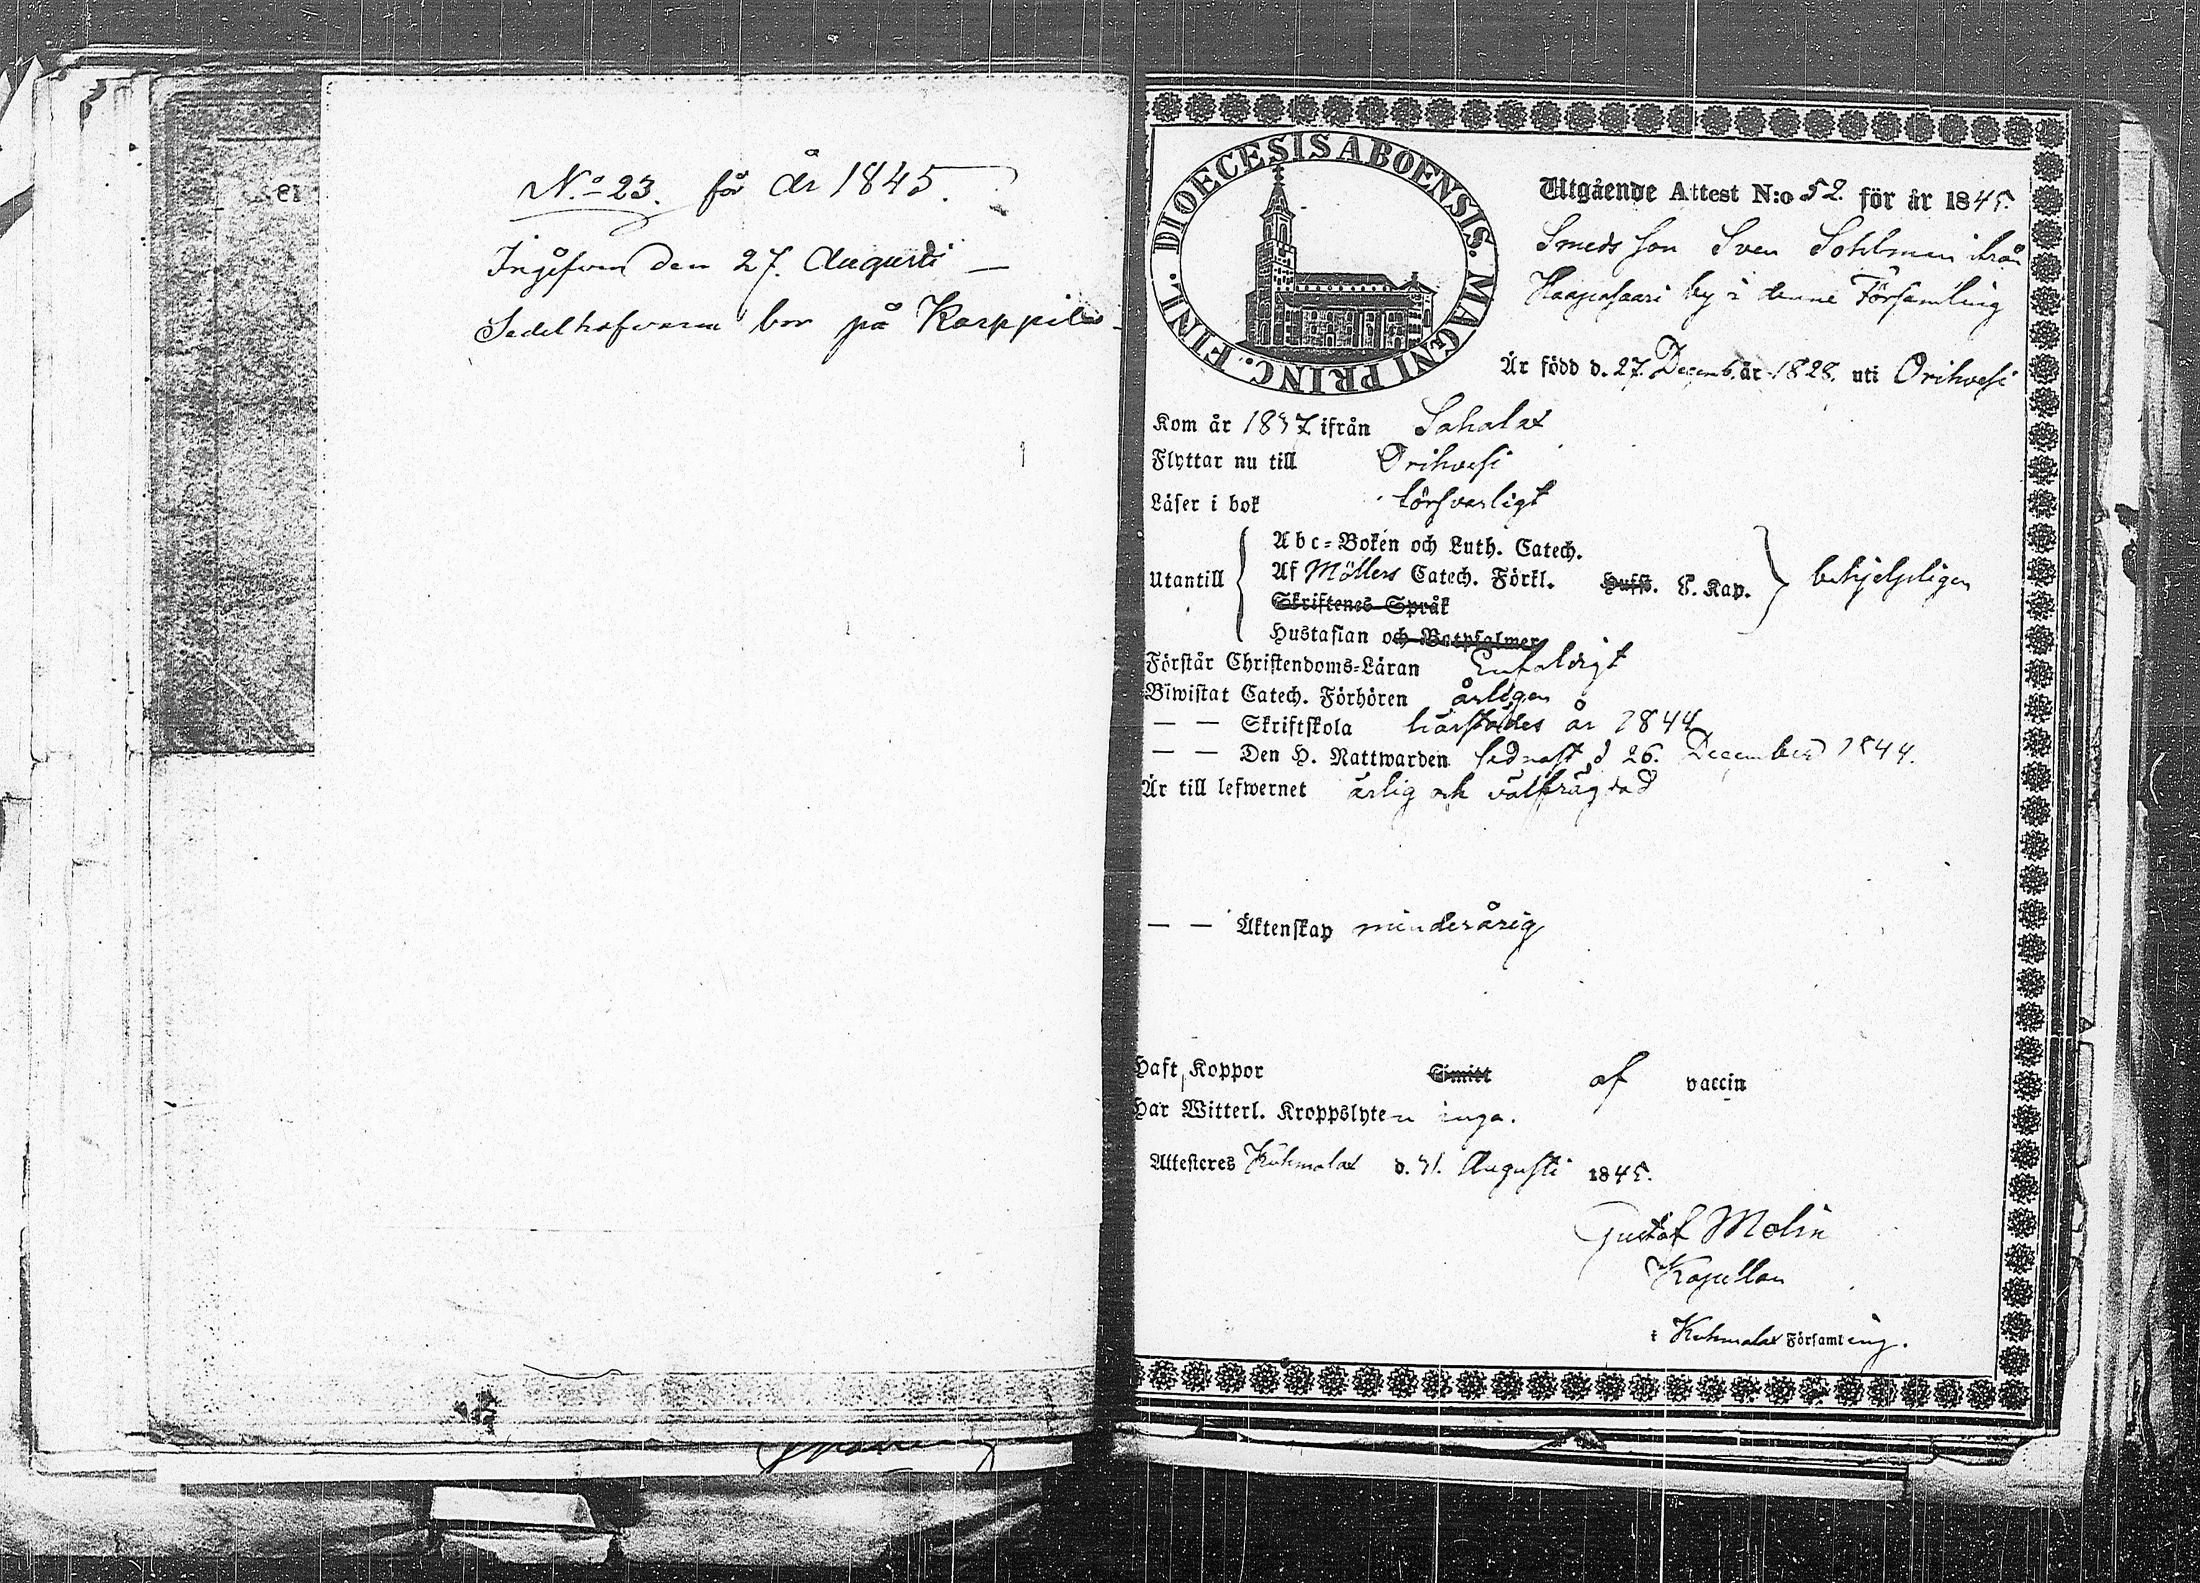 No 23. för år 1845.
Ingifven den 27. Augusti —
Sedelhafvaren bor på Karppila
DIOECESIS ABOENSIS. MAGNI PRINC. FINL.
Utgående Attest N:o 52. för år 1845.
Smeds son Sven Sohlman ifrån
Haapasaari by i denne Församling
Är född d. 27. Decemb. år 1828. uti Orihvesi
Kom år 1837 ifrån Sahalax
Flyttar nu till Orihvesi
Läser i bok försvarligt
Abc-Boken och Luth. Catech.
Utantill Af Möllers Catech. Förkl. Hufst. 5. Kap. behjelpligen
Skriftenes Språk
Hustaflan och Botpsalmer
Förstår Christendoms-Läran Enfaldigt
Biwistat Catech. Förhören årligen
— — Skriftskola härstädes år 1844
— — Den H. Nattwarden sednast d 26. December 1844.
Är till lefwernet ärlig och välfrägdad
— — Äktenskap minderårig
Haft Koppor Smitt af vaccin
Har Witterl. Kroppslyten inga.
Attesteres Kuhmalax d. 31. Augusti 1845.
Gustaf Molin
Kapellan
i Kuhmalax Församling.